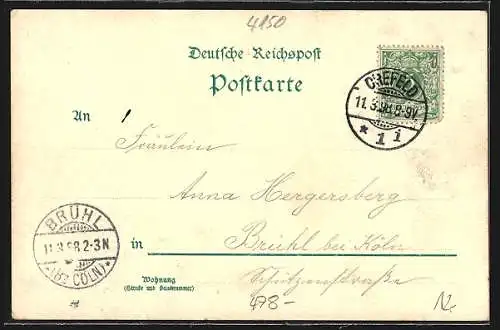 4150
Deutsche Reichspost
Postkarte
CREFELD
11.3.98.8-9V
* 1 i
An
Fräulein
Anna Hergersberg
BRÜHL
11.3.98.2-3N
*(Bz CÖLN)*
in Brühl bei Köln
Wohnung
(Straße und Hausnummer)
Schützenstraße
478-